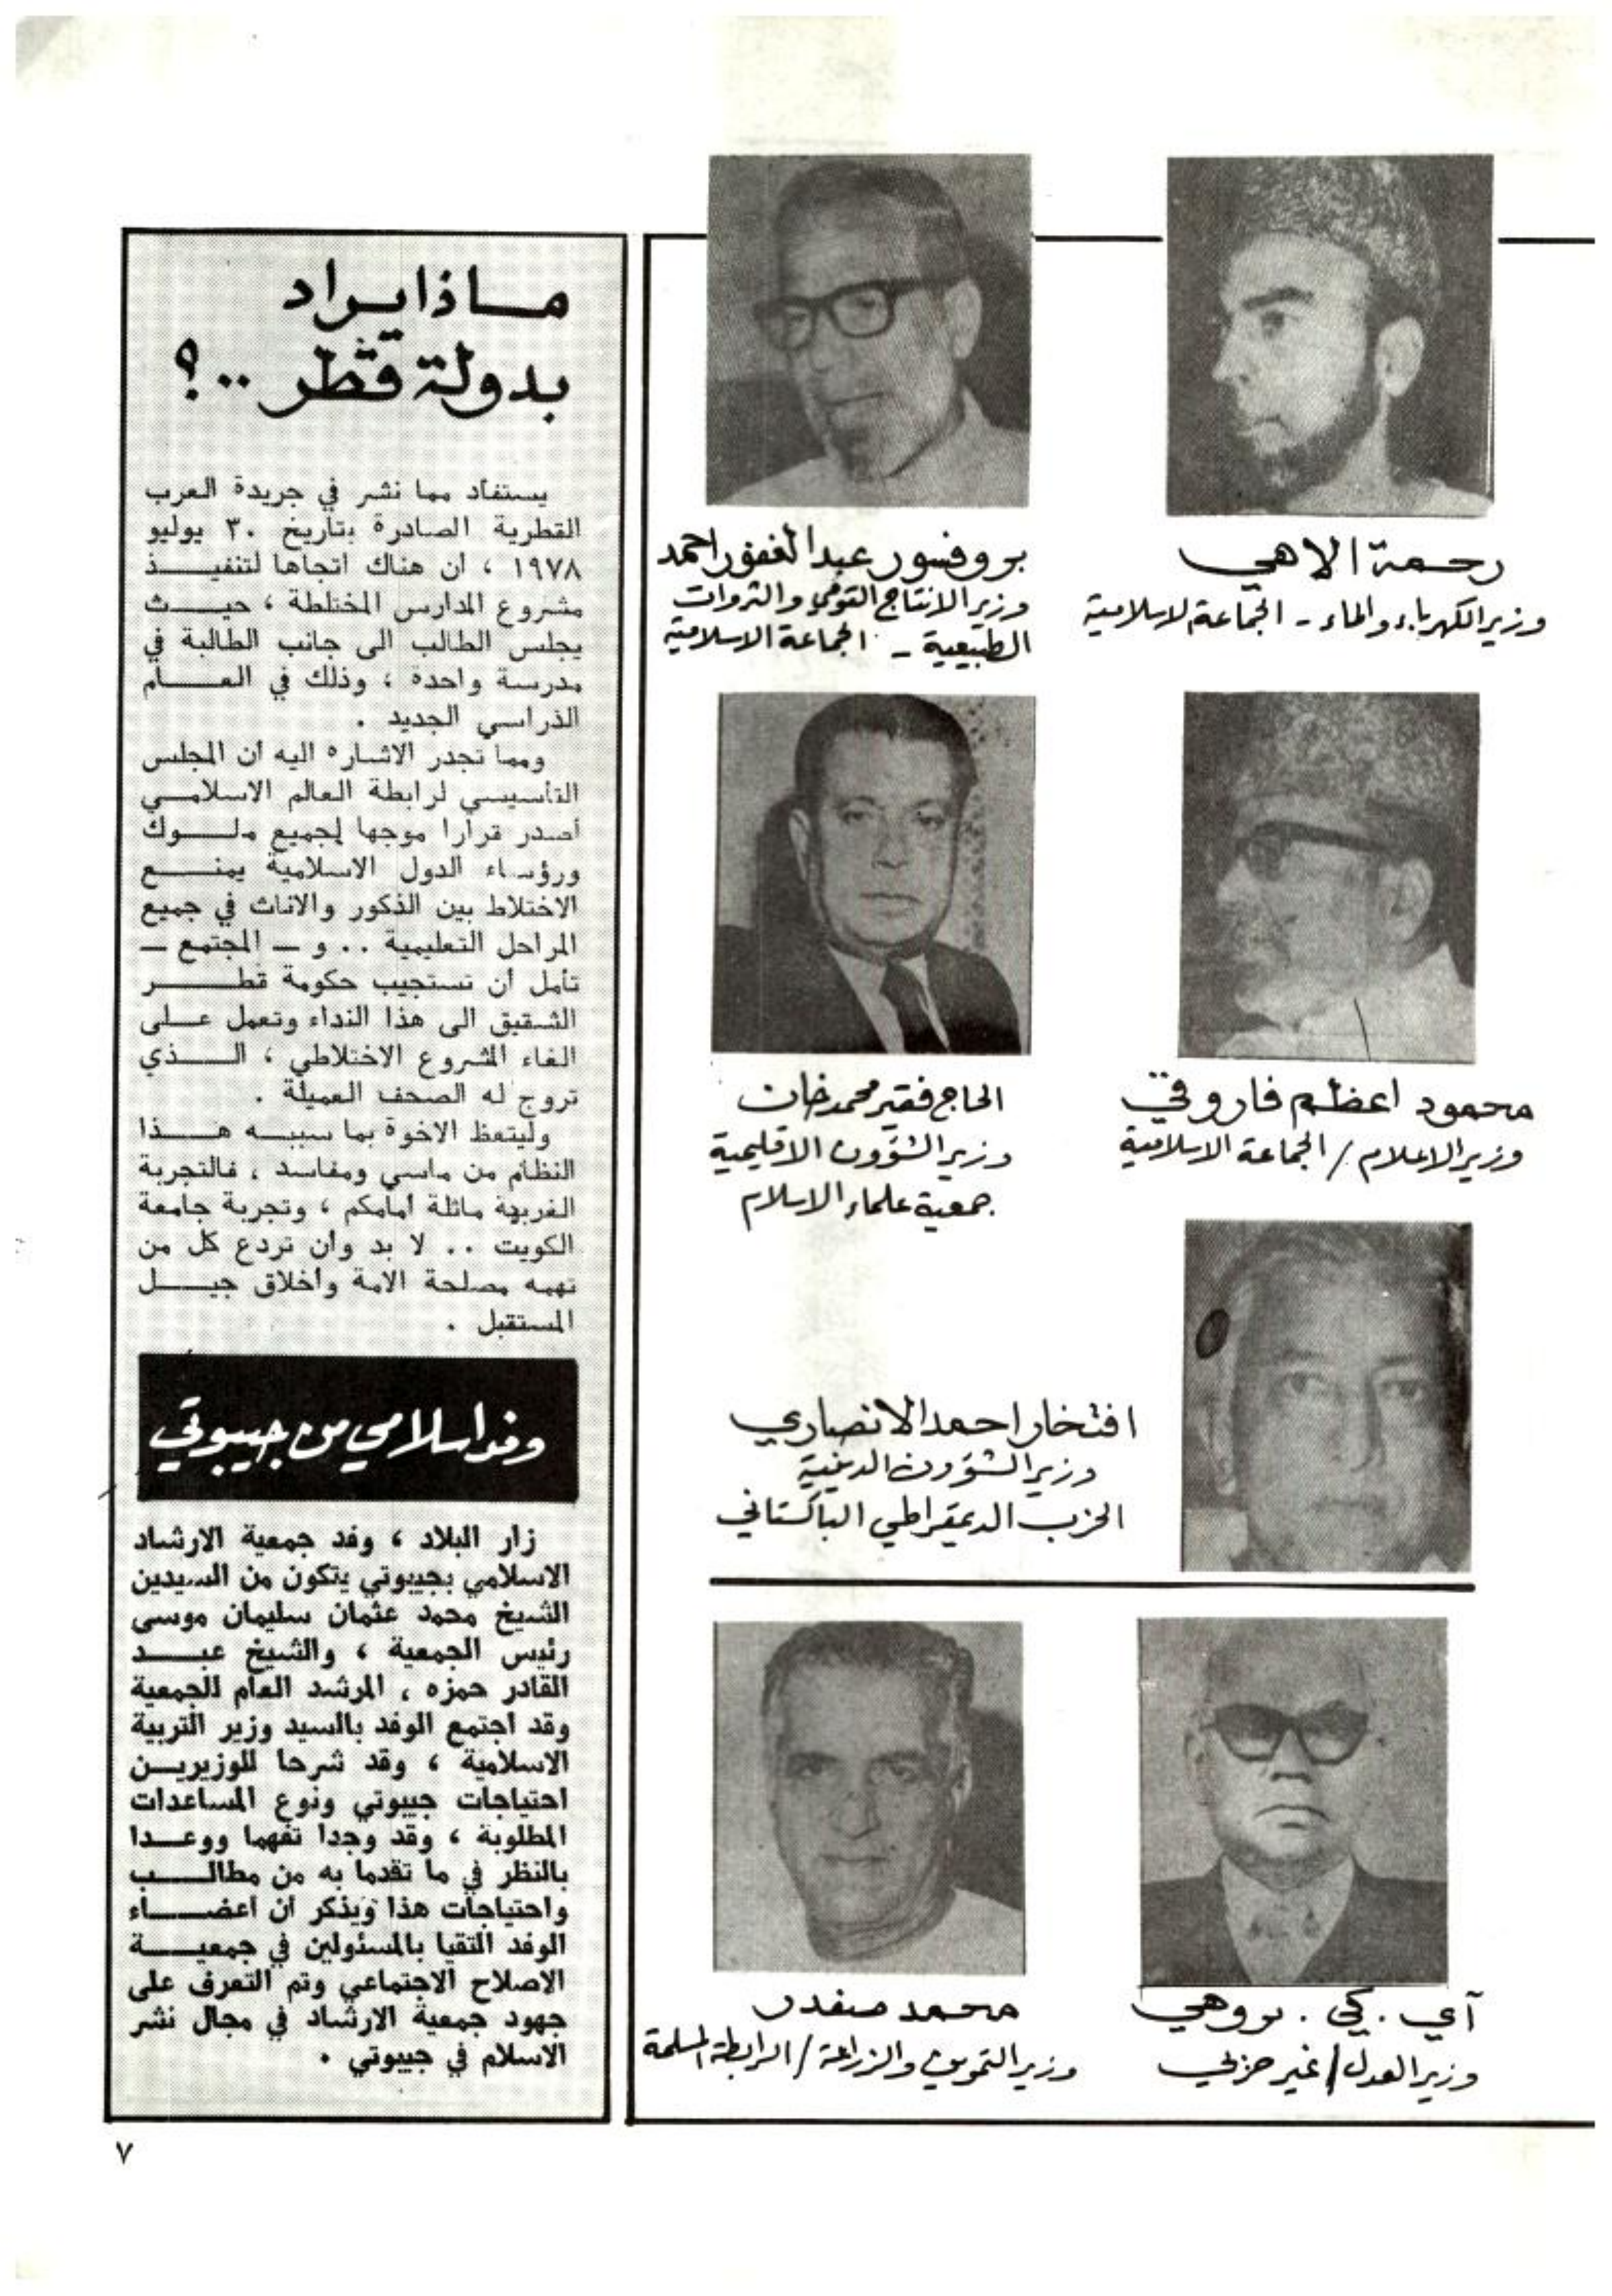 رحمة الاهي
وزير الكهرباء والماء - الجماعة الاسلامية
بروفسور عبد الغفور احمد
وزير الانتاج القومي والثروات
الطبيعية - الجماعة الاسلامية
محمود اعظم فاروقي
وزير الاعلام / الجماعة الاسلامية
الحاج فقير محمد خان
وزير الشؤون الاقليمية
جمعية علماء الاسلام
افتخار احمد الانصاري
وزير الشؤون الدينية
الحزب الديمقراطي الباكستاني
آي . كي . بروهي
وزير العدل / غير حزبي
محمد صفدر
وزير التموين والزراعة / الرابطة المسلمة
ماذا يراد
بدولة قطر ..؟
يستفاد مما نشر في جريدة العرب
القطرية الصادرة بتاريخ ٣٠ يوليو
١٩٧٨ ، ان هناك اتجاها لتنفيذ
مشروع المدارس المختلطة ، حيث
يجلس الطالب الى جانب الطالبة في
مدرسة واحدة ، وذلك في العام
الدراسي الجديد .
ومما تجدر الاشاره اليه ان المجلس
التأسيسي لرابطة العالم الاسلامي
أصدر قرارا موجها لجميع ملوك
ورؤساء الدول الاسلامية يمنع
الاختلاط بين الذكور والاناث في جميع
المراحل التعليمية .. و — المجتمع —
تأمل أن تستجيب حكومة قطر
الشقيق الى هذا النداء وتعمل على
الغاء المشروع الاختلاطي ، الذي
تروج له الصحف العميلة .
وليتعظ الاخوة بما سببه هذا
النظام من مآسي ومفاسد ، فالتجربة
الغربية ماثلة أمامكم ، وتجربة جامعة
الكويت .. لا بد وان تردع كل من
تهمه مصلحة الامة وأخلاق جيل
المستقبل .
وفد اسلامي من جيبوتي
زار البلاد ، وفد جمعية الارشاد
الاسلامي بجيبوتي يتكون من السيدين
الشيخ محمد عثمان سليمان موسى
رئيس الجمعية ، والشيخ عبد
القادر حمزه ، المرشد العام للجمعية
وقد اجتمع الوفد بالسيد وزير التربية
الاسلامية ، وقد شرحا للوزيرين
احتياجات جيبوتي ونوع المساعدات
المطلوبة ، وقد وجدا تفهما ووعدا
بالنظر في ما تقدما به من مطالب
واحتياجات هذا ويذكر ان اعضاء
الوفد التقيا بالمسئولين في جمعية
الاصلاح الاجتماعي وتم التعرف على
جهود جمعية الارشاد في مجال نشر
الاسلام في جيبوتي .
٧